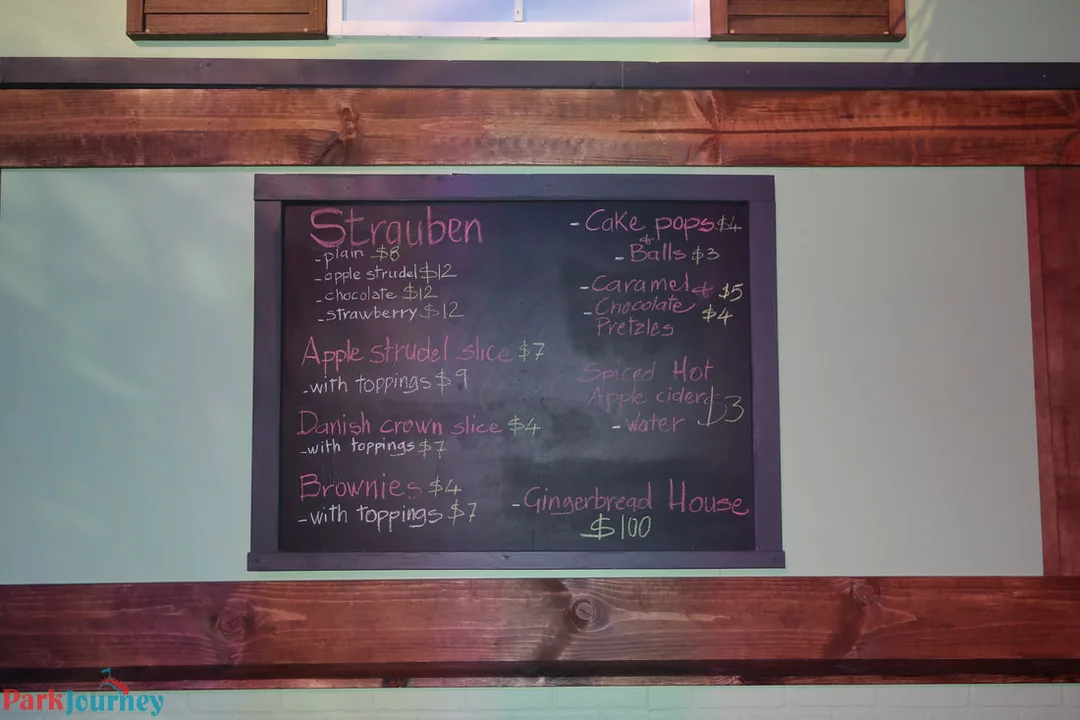 Strauben
-plain $8
-apple strudel $12
-chocolate $12
-strawberry $12
Apple strudel slice $7
-with toppings $9
Danish crown slice $4
-with toppings $7
Brownies $4
-with toppings $7
-Cake pops $4
&
-Balls $3
-Caramel & $5
-Chocolate $4
Pretzles
Spiced Hot
Apple cider
-Water $3
-Gingerbread House
$100
ParkJourney